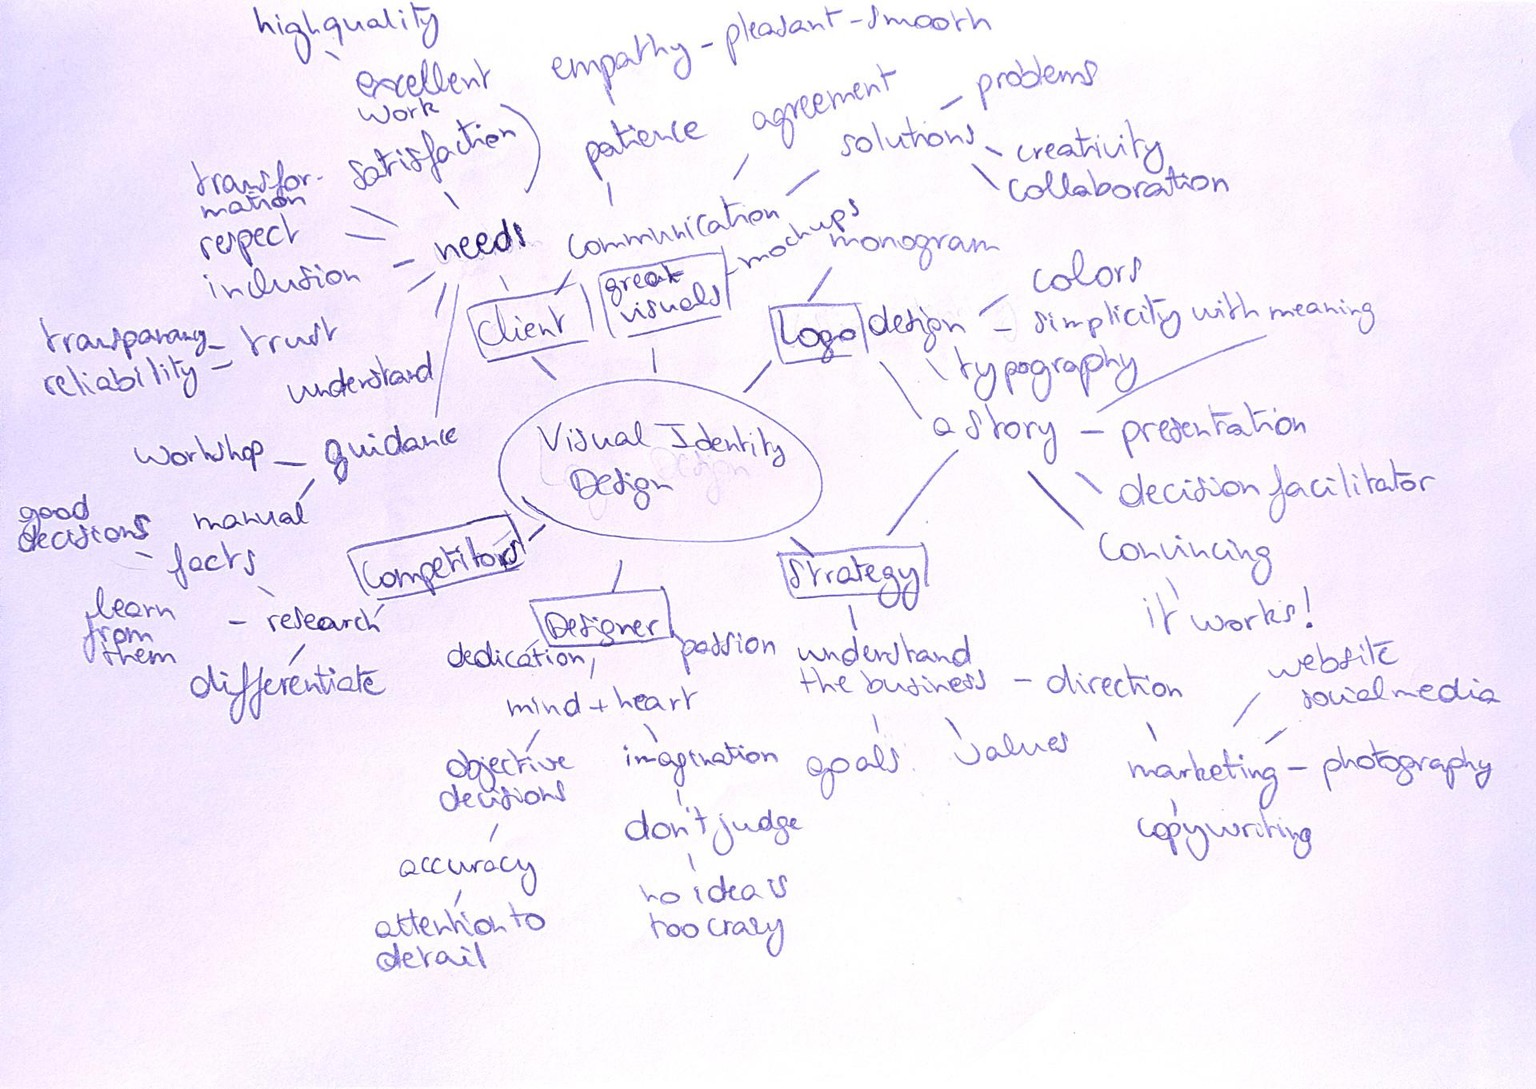 high quality
excellent
work
satisfaction
empathy - pleasant - smooth
patience
agreement
solutions
problems
creativity
collaboration
transfor-
mation
respect
inclusion
needs
communication
mockups
monogram
client
great
visuals
logo design
colors
simplicity with meaning
typography
transparany
reliability
trust
understand
a story - presentation
Visual Identity
Design
workshop - guidance
manual
decision facilitator
convincing
it works!
good
decisions
facts
competitors
strategy
learn
from
them
research
differentiate
Designer
dedication,
passion
mind + heart
understand
the business - direction
website
social media
objective
decisions
imagination
goals
values
marketing - photography
copywriting
don't judge
accuracy
no idea is
too crazy
attention to
detail